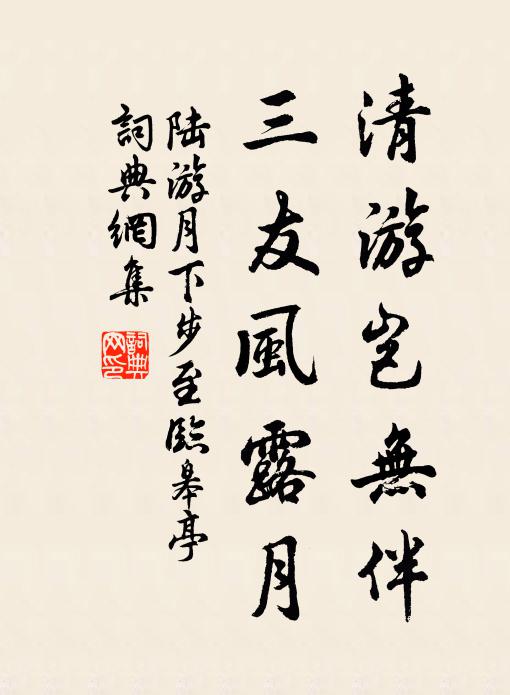 清游豈無伴
三友風露月
陆游月下步至臨皋亭
詞典網集
詞典
网印